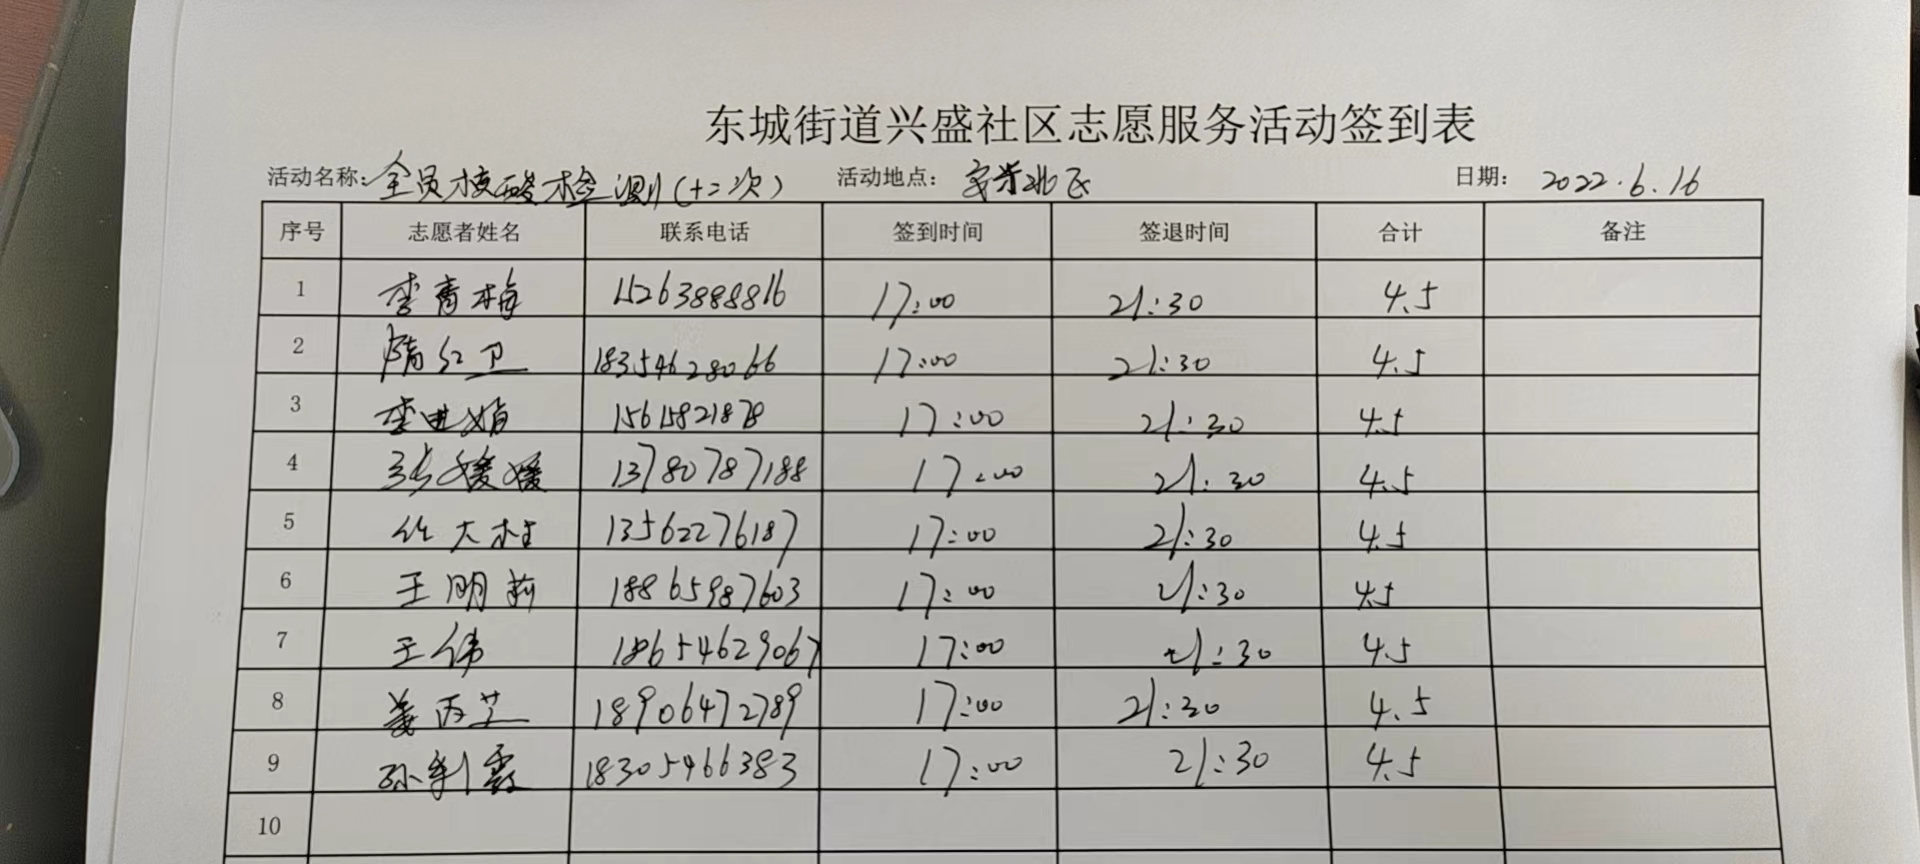 东城街道兴盛社区志愿服务活动签到表
活动名称：全员核酸检测(十二次) 活动地点： 日期： 2022.6.16
序号 志愿者姓名 联系电话 签到时间 签退时间 合计 备注
1 李青梅 15263888816 17:00 21:30 4.5
2 隋红卫 18354628066 17:00 21:30 4.5
3 李 娟 17:00 21:30 4.5
4 张媛媛 13780787188 17:00 21:30 4.5
5 13562276187 17:00 21:30 4.5
6 王明莉 18865987603 17:00 21:30 4.5
7 王伟 18654629067 17:00 21:30 4.5
8 姜丙芝 18906472789 17:00 21:30 4.5
9 孙利霞 18305466383 17:00 21:30 4.5
10